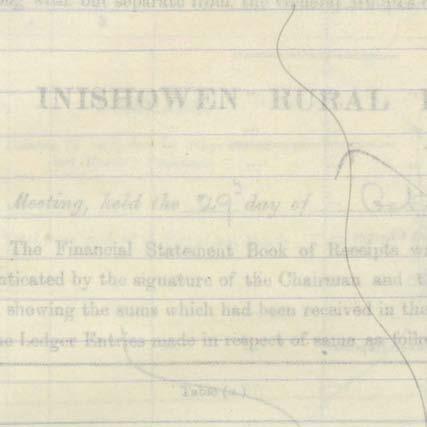 out separate from, the General
INISHOWEN RURAL
Meeting, held the 29 day of
The Financial Statement Book of Receipts
by the signature of the Chairman and
showing the sums which had been received in the
Ledger Entries made in respect of same as